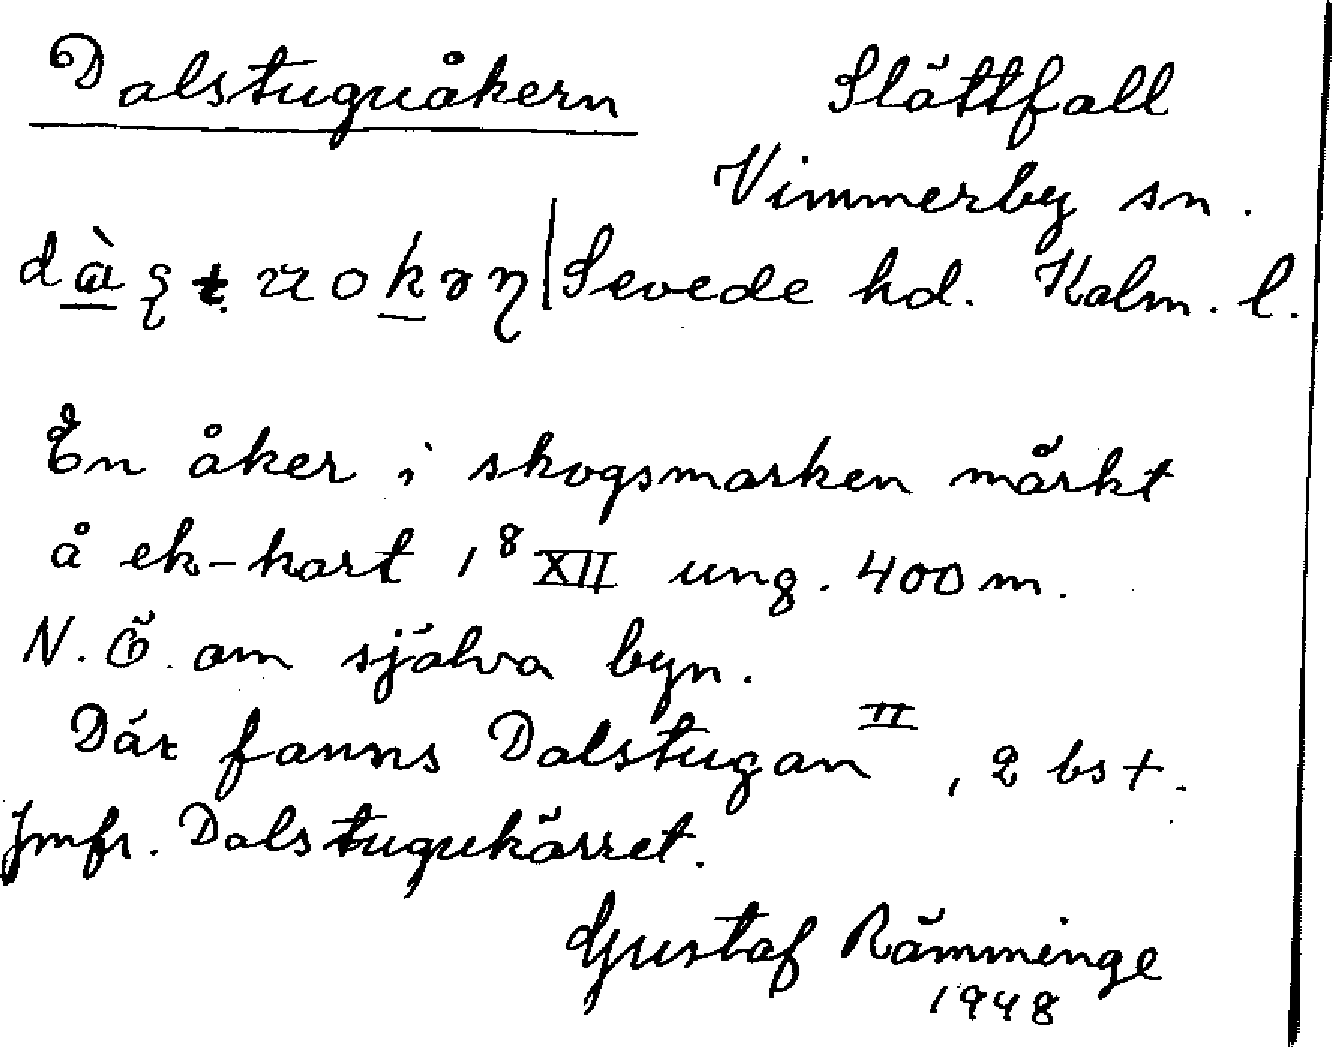 Dalstuguåkern Slättfall
Vimmerby sn.
Sevede hd. Kalm. l.
En åker i skogsmarken märkt
å ek-kart 1⁸ XII ung. 400 m.
N. Ö. om själva byn.
Där fanns Dalstugan II, 2 bst.
Jmfr. Dalstugukärret.
Gustaf Rämminge
1948